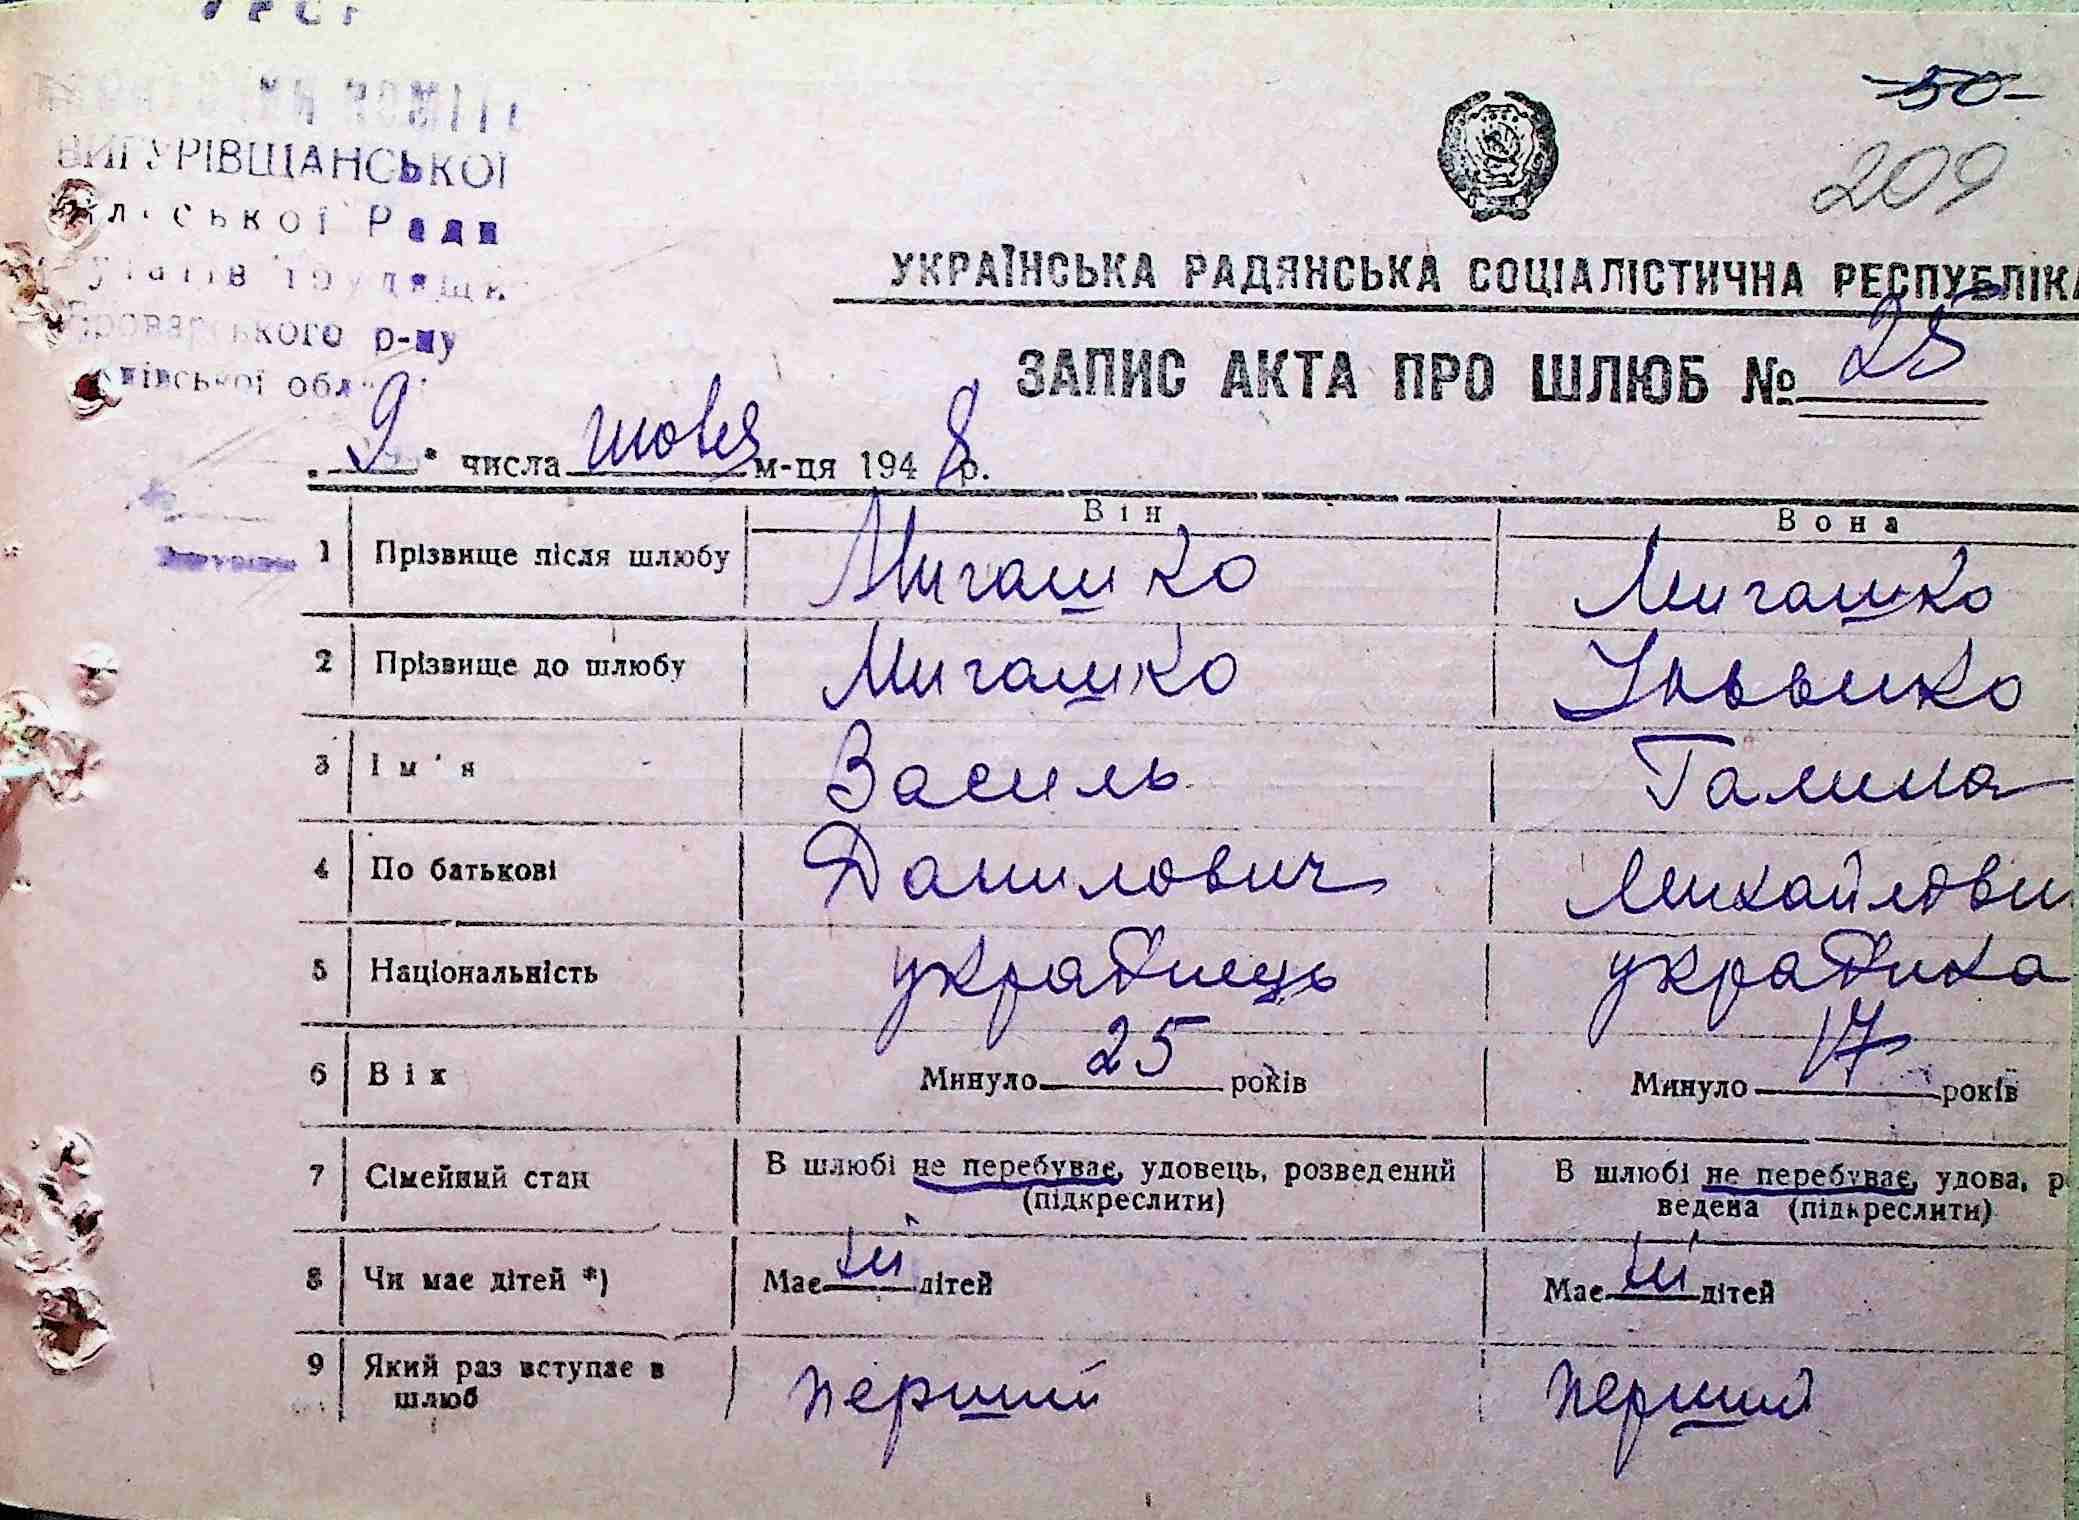 УРСР
ВИГУРІВЩАНСЬКОЇ
сільської Ради
Броварського р-ну
Київської обл.
50
209
УКРАЇНСЬКА РАДЯНСЬКА СОЦІАЛІСТИЧНА РЕСПУБЛІКА
ЗАПИС АКТА ПРО ШЛЮБ № 25
„9" числа м-ця 1948 р.
Він Вона
1 Прізвище після шлюбу Мигашко Мигашко
2 Прізвище до шлюбу Мигашко
3 Ім'я Василь Галина
4 По батькові Данилович Михайлови
5 Національність українець українка
6 Вік Минуло 25 років Минуло 17 років
7 Сімейний стан В шлюбі не перебуває, удовець, розведений В шлюбі не перебуває, удова, р
(підкреслити) ведена (підкреслити)
8 Чи має дітей *) Має дітей Має дітей
9 Який раз вступає в перший перший
шлюб